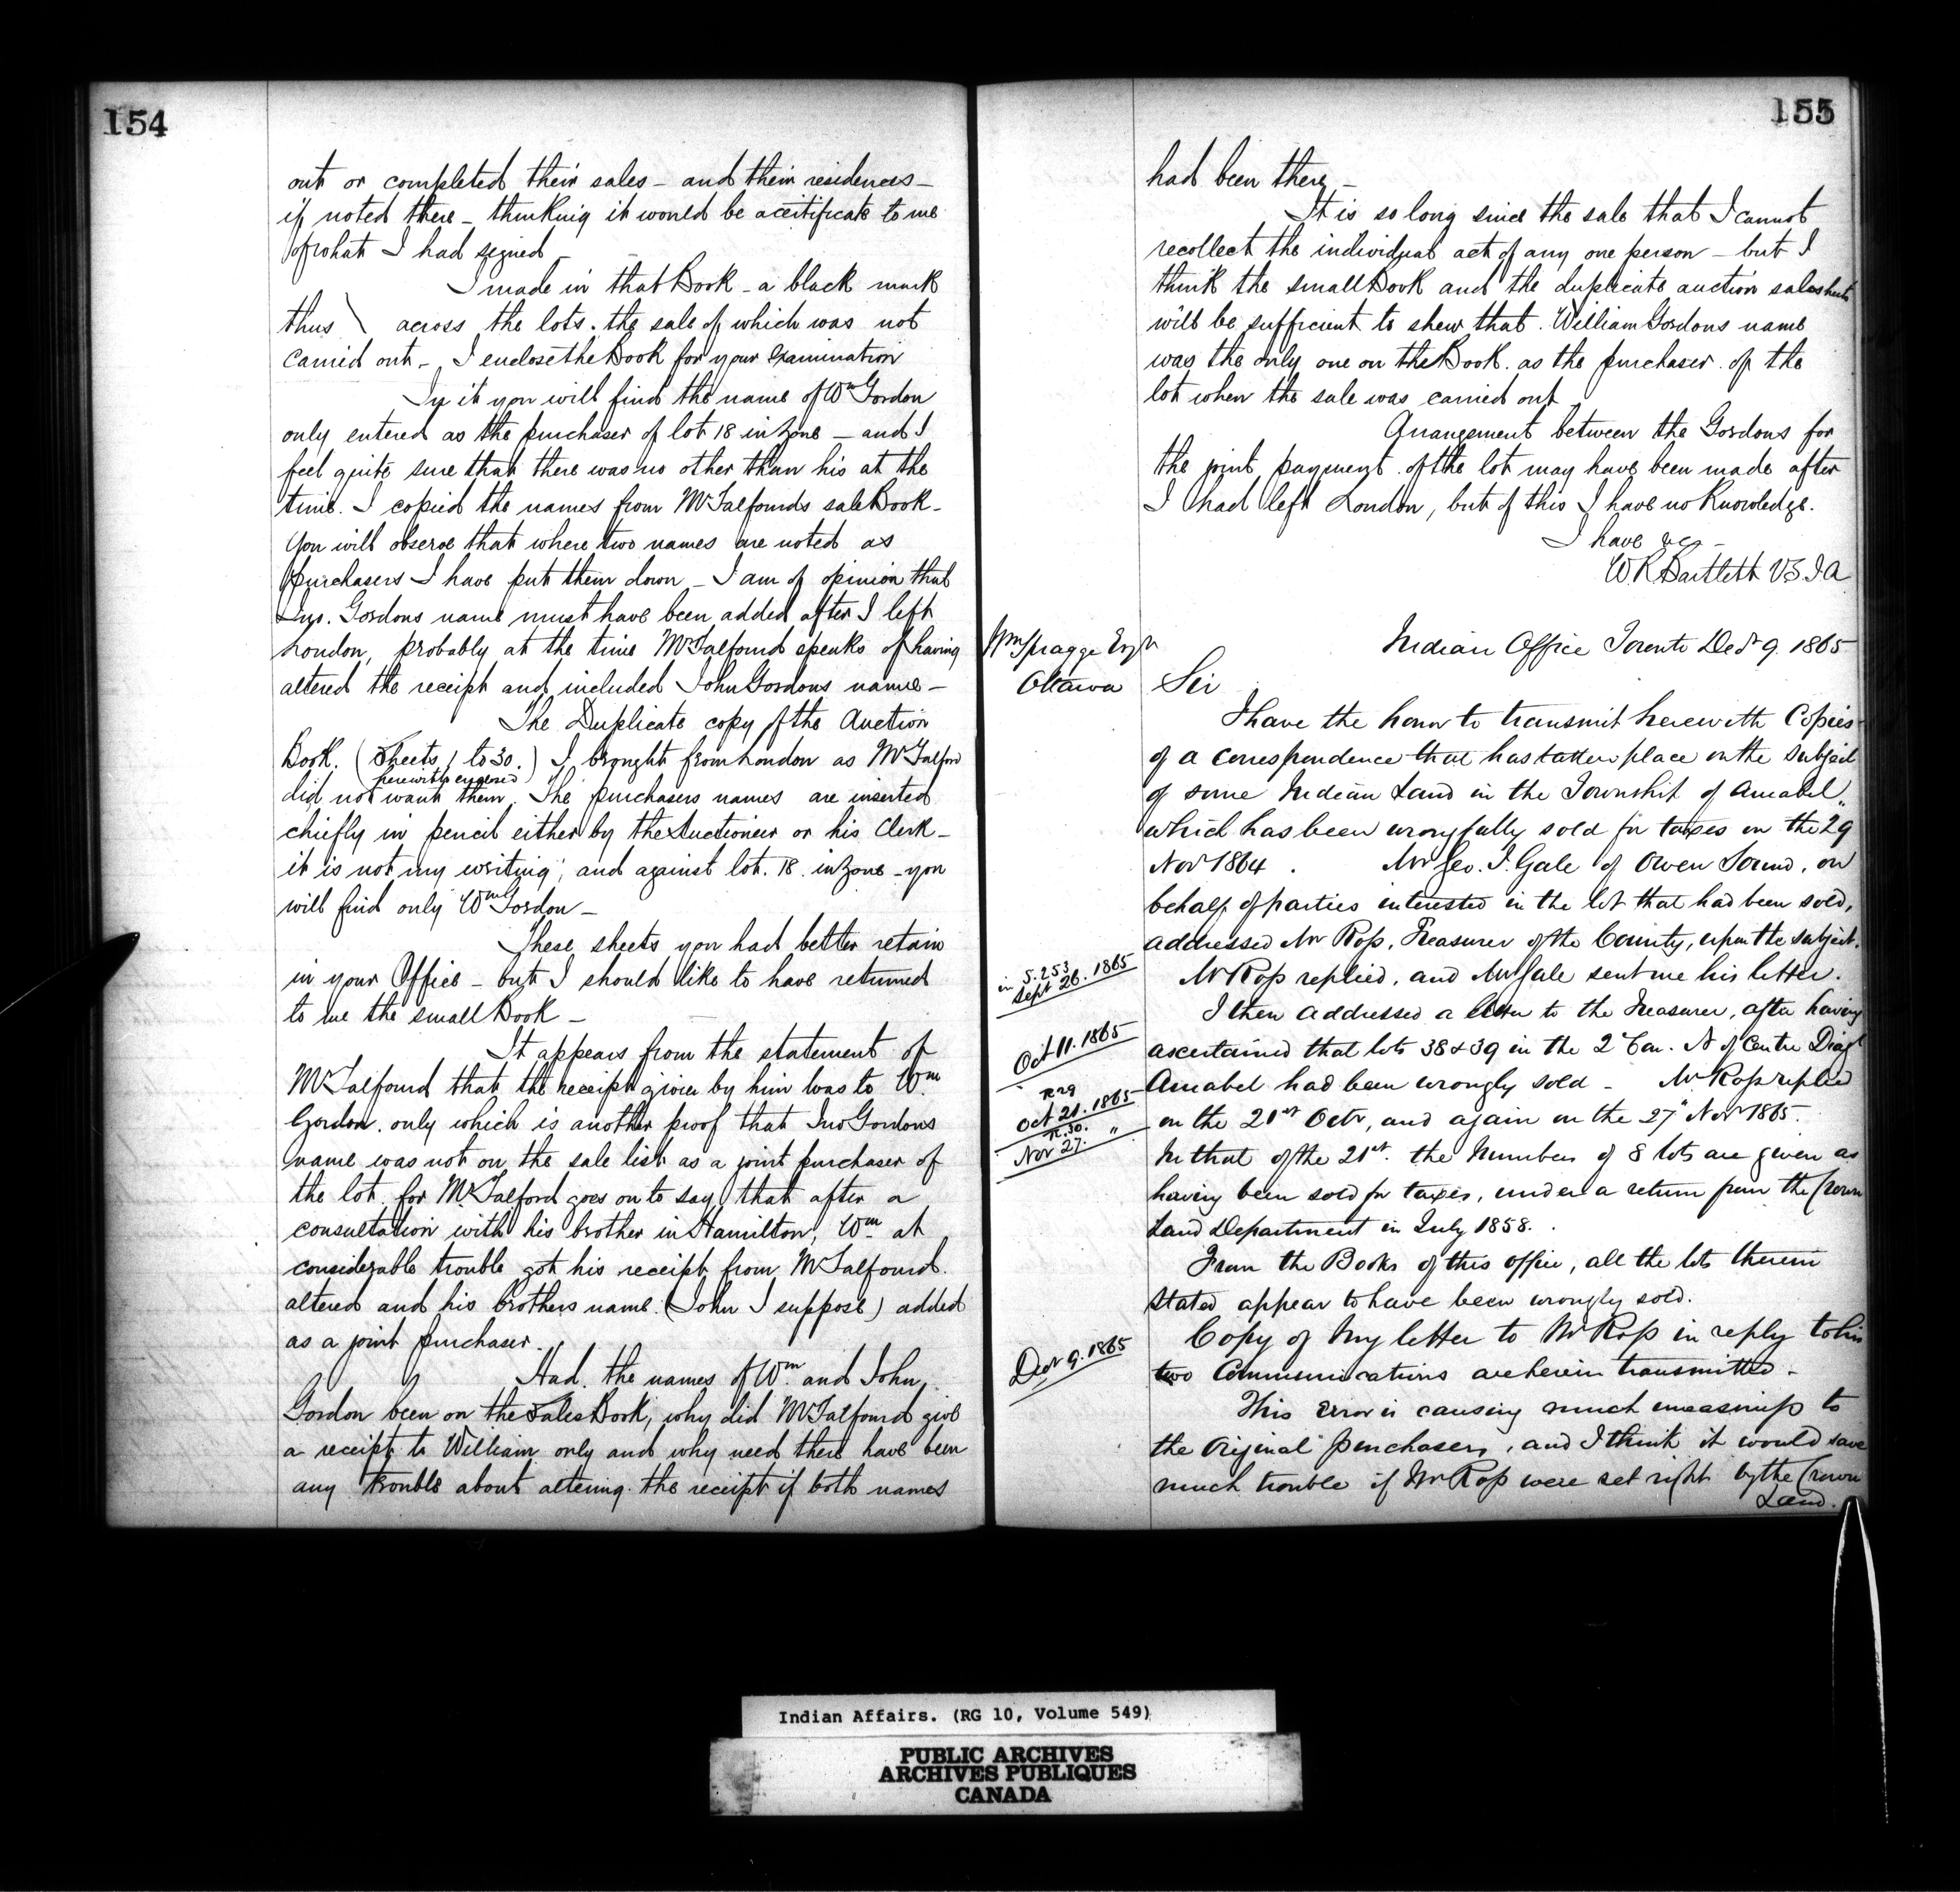 154
out or completed their sales – and their residences –
if noted there – thinking it would be a certificate to me
of what I had signed –
I made in that Book – a black mark
thus \ across the lots. the sale of which was not
carried out – I enclose the Book for your examination
In it you will find the name of Wm Gordon
only entered as the purchaser of lot 18 in Zone – and I
feel quite sure that there was no other than his at the
time. I copied the names from Mr Talfourds sale Book –
You will observe that where two names are noted as
purchasers I have put them down – I am of opinion that
Jno. Gordons name must have been added after I left
London, probably at the time Mr Talfourd speaks of having
altered the receipt and included John Gordons name –
The Duplicate copy of the Auction
Book. (Sheets 1 to 30.) I brought from London as Mr Talford
herewith enclosed
did not want them. The purchasers names are inserted
chiefly in pencil either by the Auctioneer or his Clerk –
it is not my writing; and against lot. 18. in Zone – you
will find only Wm Gordon –
These sheets you had better retain
in your Office – but I should like to have returned
to me the small Book –
It appears from the statement of
Mr Talfourd that the receipt given by him was to Wm
Gordon. only which is another proof that Jno Gordons
name was not on the sale list as a joint purchaser of
the lot. for Mr Talford goes on to say that after a
consultation with his brother in Hamilton, Wm at
considerable trouble got his receipt from Mr Talfourd.
altered and his brothers name (John I suppose) added
as a joint purchaser.
Had. the names of Wm. and John
Gordon been on the Sales Book, why did Mr Talfourd give
a receipt to William only and why need there have been
any trouble about altering the receipt if both names
155
had been there –
It is so long since the sale that I cannot
recollect the individual act of any one person – but I
think the small Book and the duplicate auction sale sheets
will be sufficient to shew that. William Gordons name
was the only one on the Book. as the purchaser. of the
lot when the sale was carried out
Arrangement between the Gordons for
the joint payment. of the lot may have been made after
I had left London, but of this I have no Knowledge.
I have &c –
W R Bartlett V.S.I.A
Wm Spragge Esqr
Ottawa
Indian Office Toronto Decr 9. 1865
Sir
I have the honor to transmit herewith Copies
of a correspondence that has taken place on the subject
of some Indian Land in the Township of Amabel,
which has been wrongfully sold for taxes on the 29
Novr 1864. Mr Geo. J. Gale of Owen Sound, on
behalf of parties interested in the lot that had been sold,
addressed Mr Ross, Treasurer of the County, upon the subject.
in S. 253
Sept 26. 1865
Mr Ross replied, and Mr Gale sent me his letter.
I then addressed a letter to the Treasurer, after having
Oct 11. 1865
ascertained that lots 38 & 39 in the 2d Con. N of Centre Diagl
Amabel had been wrongly sold – Mr Ross replied
R 29
Oct 21. 1865
R. 30.
Nov 27. "
on the 21st Octr, and again on the 27th Novr 1865.
In that of the 21st. the Numbers of 8 lots are given as
having been sold for taxes, under a return from the Crown
Land Department in July 1858.
From the Books of this office, all the lots therein
stated appear to have been wrongly sold.
Decr 9. 1865
Copy of my letter to Mr Ross in reply to his
two Communications are herein transmitted –
This error is causing much uneasiness to
the Original purchasers, and I think it would save
much trouble if Mr Ross were set right by the Crown
Land.
Indian Affairs. (RG 10, Volume 549)
PUBLIC ARCHIVES
ARCHIVES PUBLIQUES
CANADA